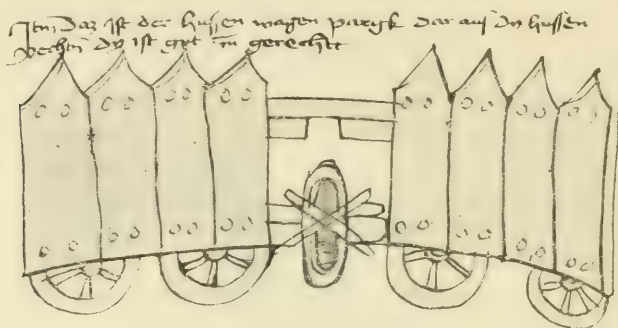 Item Daz ist der hussen wagen paregk dar auf dy hussen
vechtn dy ist gut vn̄ gerecht